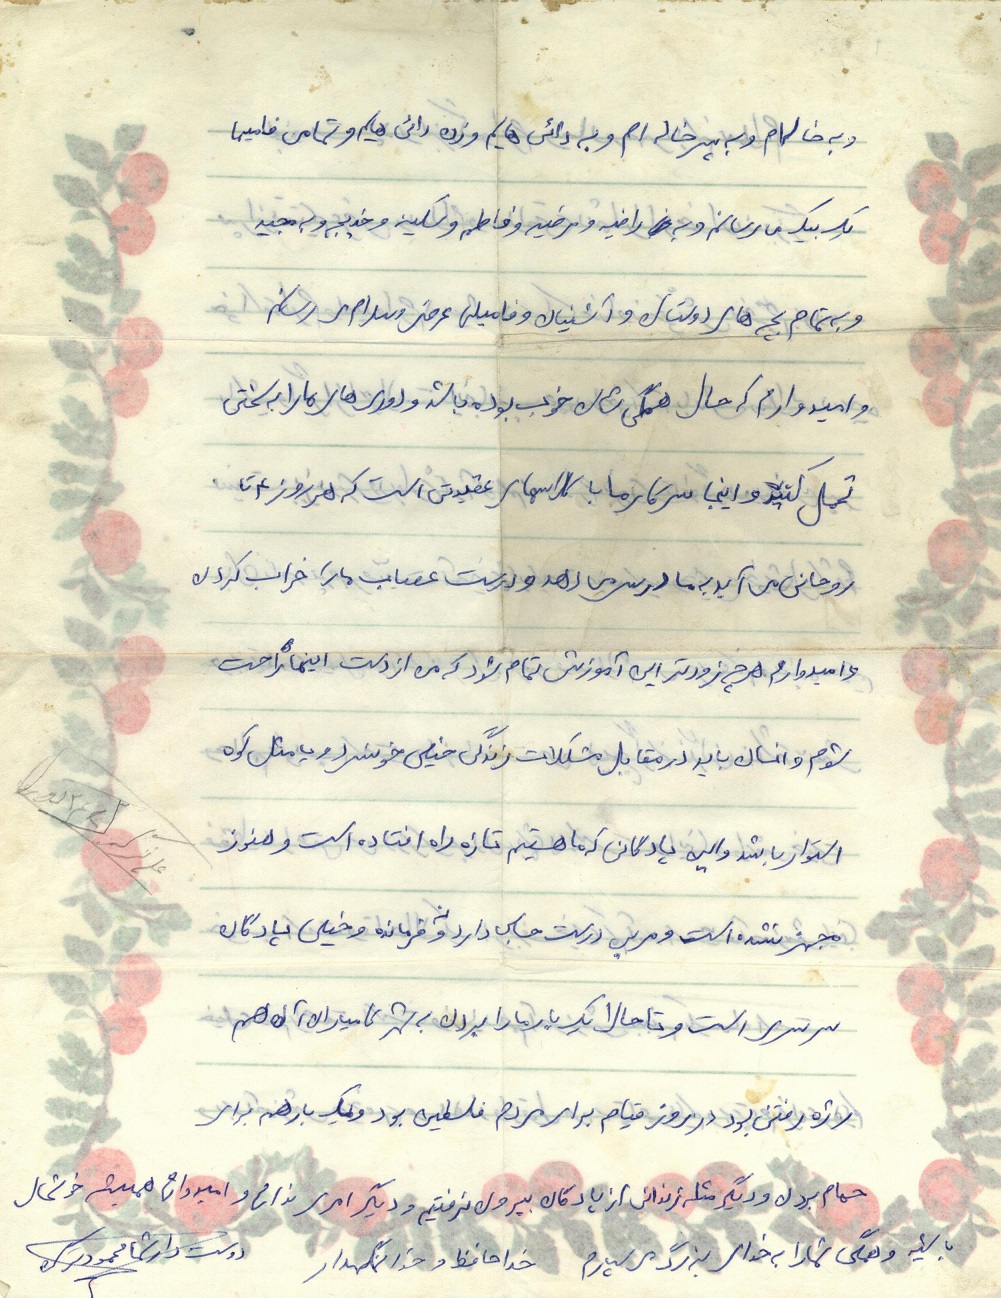 و به خاله‌ام و به پسر خاله ام و به دائی هایم و زن دائی هایم و تمامی فامیلها
یک بیک می رسانم و به راضیه و مرضیه و فاطمه و سکینه و خدیجه و به مجید
و به تمام بچه های دوستان و آشنایان و فامیلان عرض و سلام می رسانم
و امیدوارم که حال همگی شان خوب بوده باشد و دوری های ما را به سختی
تحمل نکنند و اینجا سر کار ما با کلاسهای عقیدتی است که هر روز ۴ تا
روحانی می آید به ما درس می دهد و درست عصاب ما را خراب کردن
و امیدوارم هر چه زودتر این آموزش تمام شود که من از دست اینها راحت
شوم و انسان باید در مقابل مشکلات زندگی خیلی خونسرد و یا مثل کوه
استوار باشد و این پادگانی که ما هستیم تازه راه افتاده است و هنوز
مجهز نشده است و مربی درست حسابی دارد و نه فرمانده و خیلی پادگان
سرسری است و تا حالا یک بار ما را بردن به شهر کامیاران آن هم
رژه رفتن بود در روز قیام برای مردم فلسطین بود و یک بار هم برای
حمام بردن و دیگر مثل زندانی از پادگان بیرون نرفتیم و دیگر امری ندارم و امیدوارم همیشه خوشحال
باشید و همگی شما را به خدای بزرگ می سپارم خداحافظ و خدا نگهدار دوست دار شما محمود